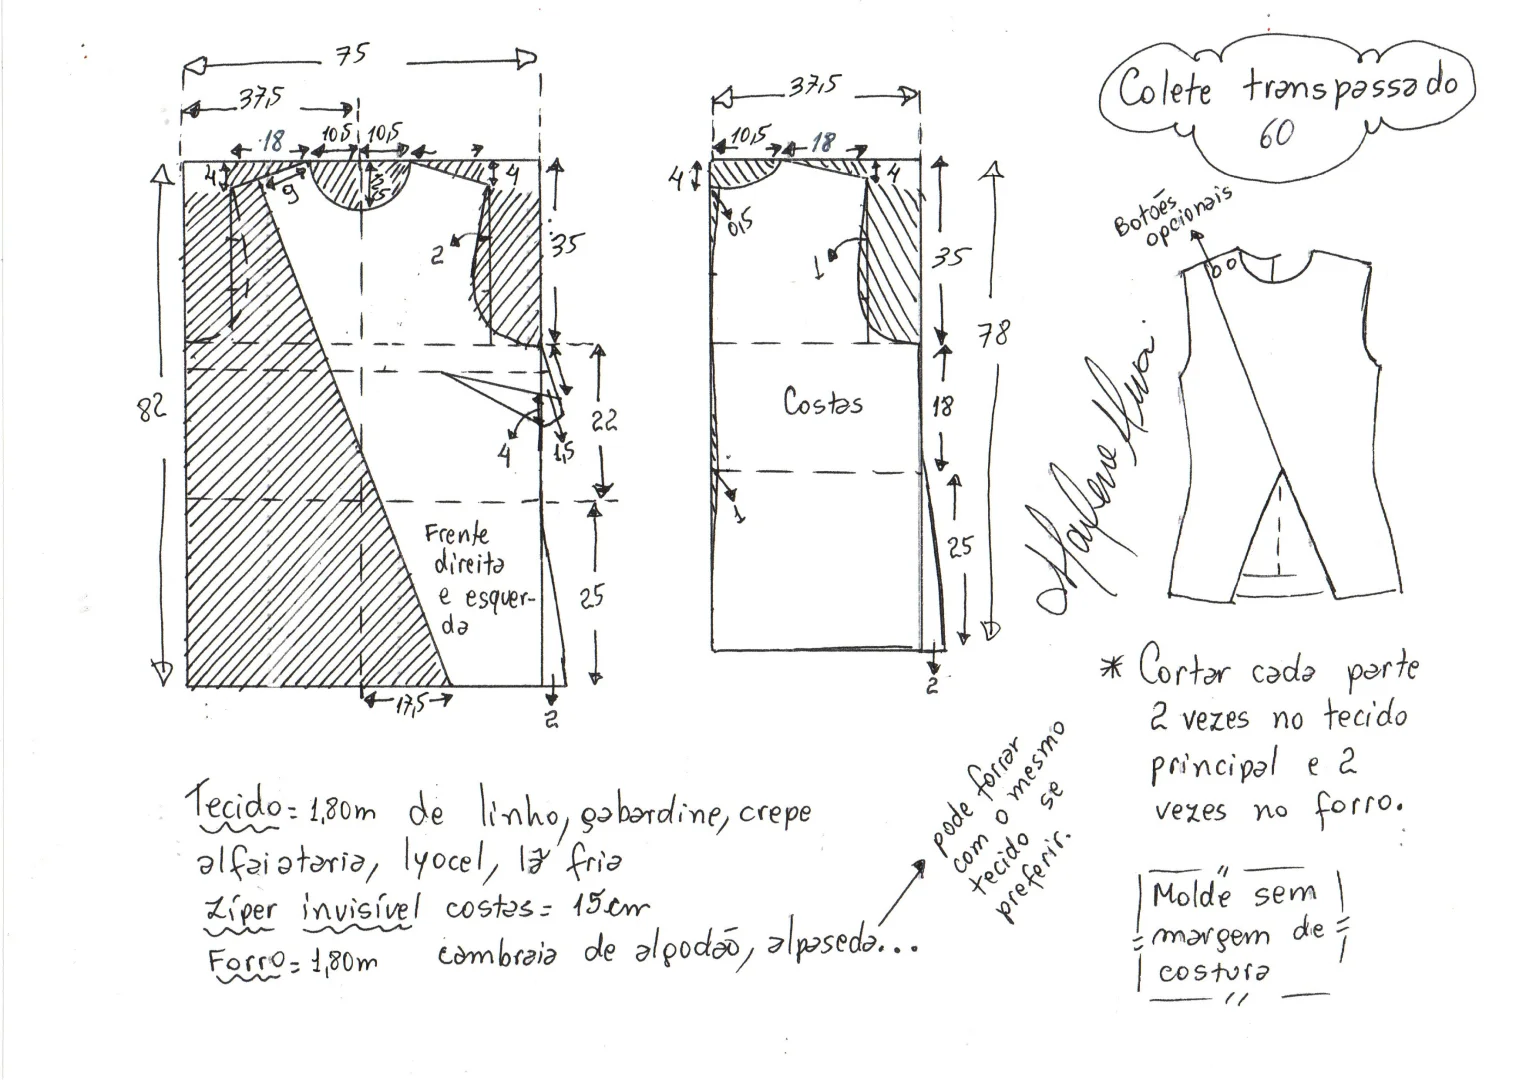 75
37,5
18
10,5
10,5
4
9
4
2
35
82
22
4
1,5
Frente
direita
e esquer-
da
25
17,5
2
37,5
10,5
18
4
4
0,5
1
35
78
Costas
18
1
25
2
Colete transpassado
60
Botões
opcionais
* Cortar cada parte
2 vezes no tecido
principal e 2
vezes no forro.
Molde sem
margem de
costura
Tecido = 1,80m de linho, gabardine, crepe
alfaiataria, lyocel, lã fria
Zíper invisível costas = 15cm
Forro = 1,80m cambraia de algodão, alpaseda...
pode forrar
com o mesmo
tecido se
preferir.